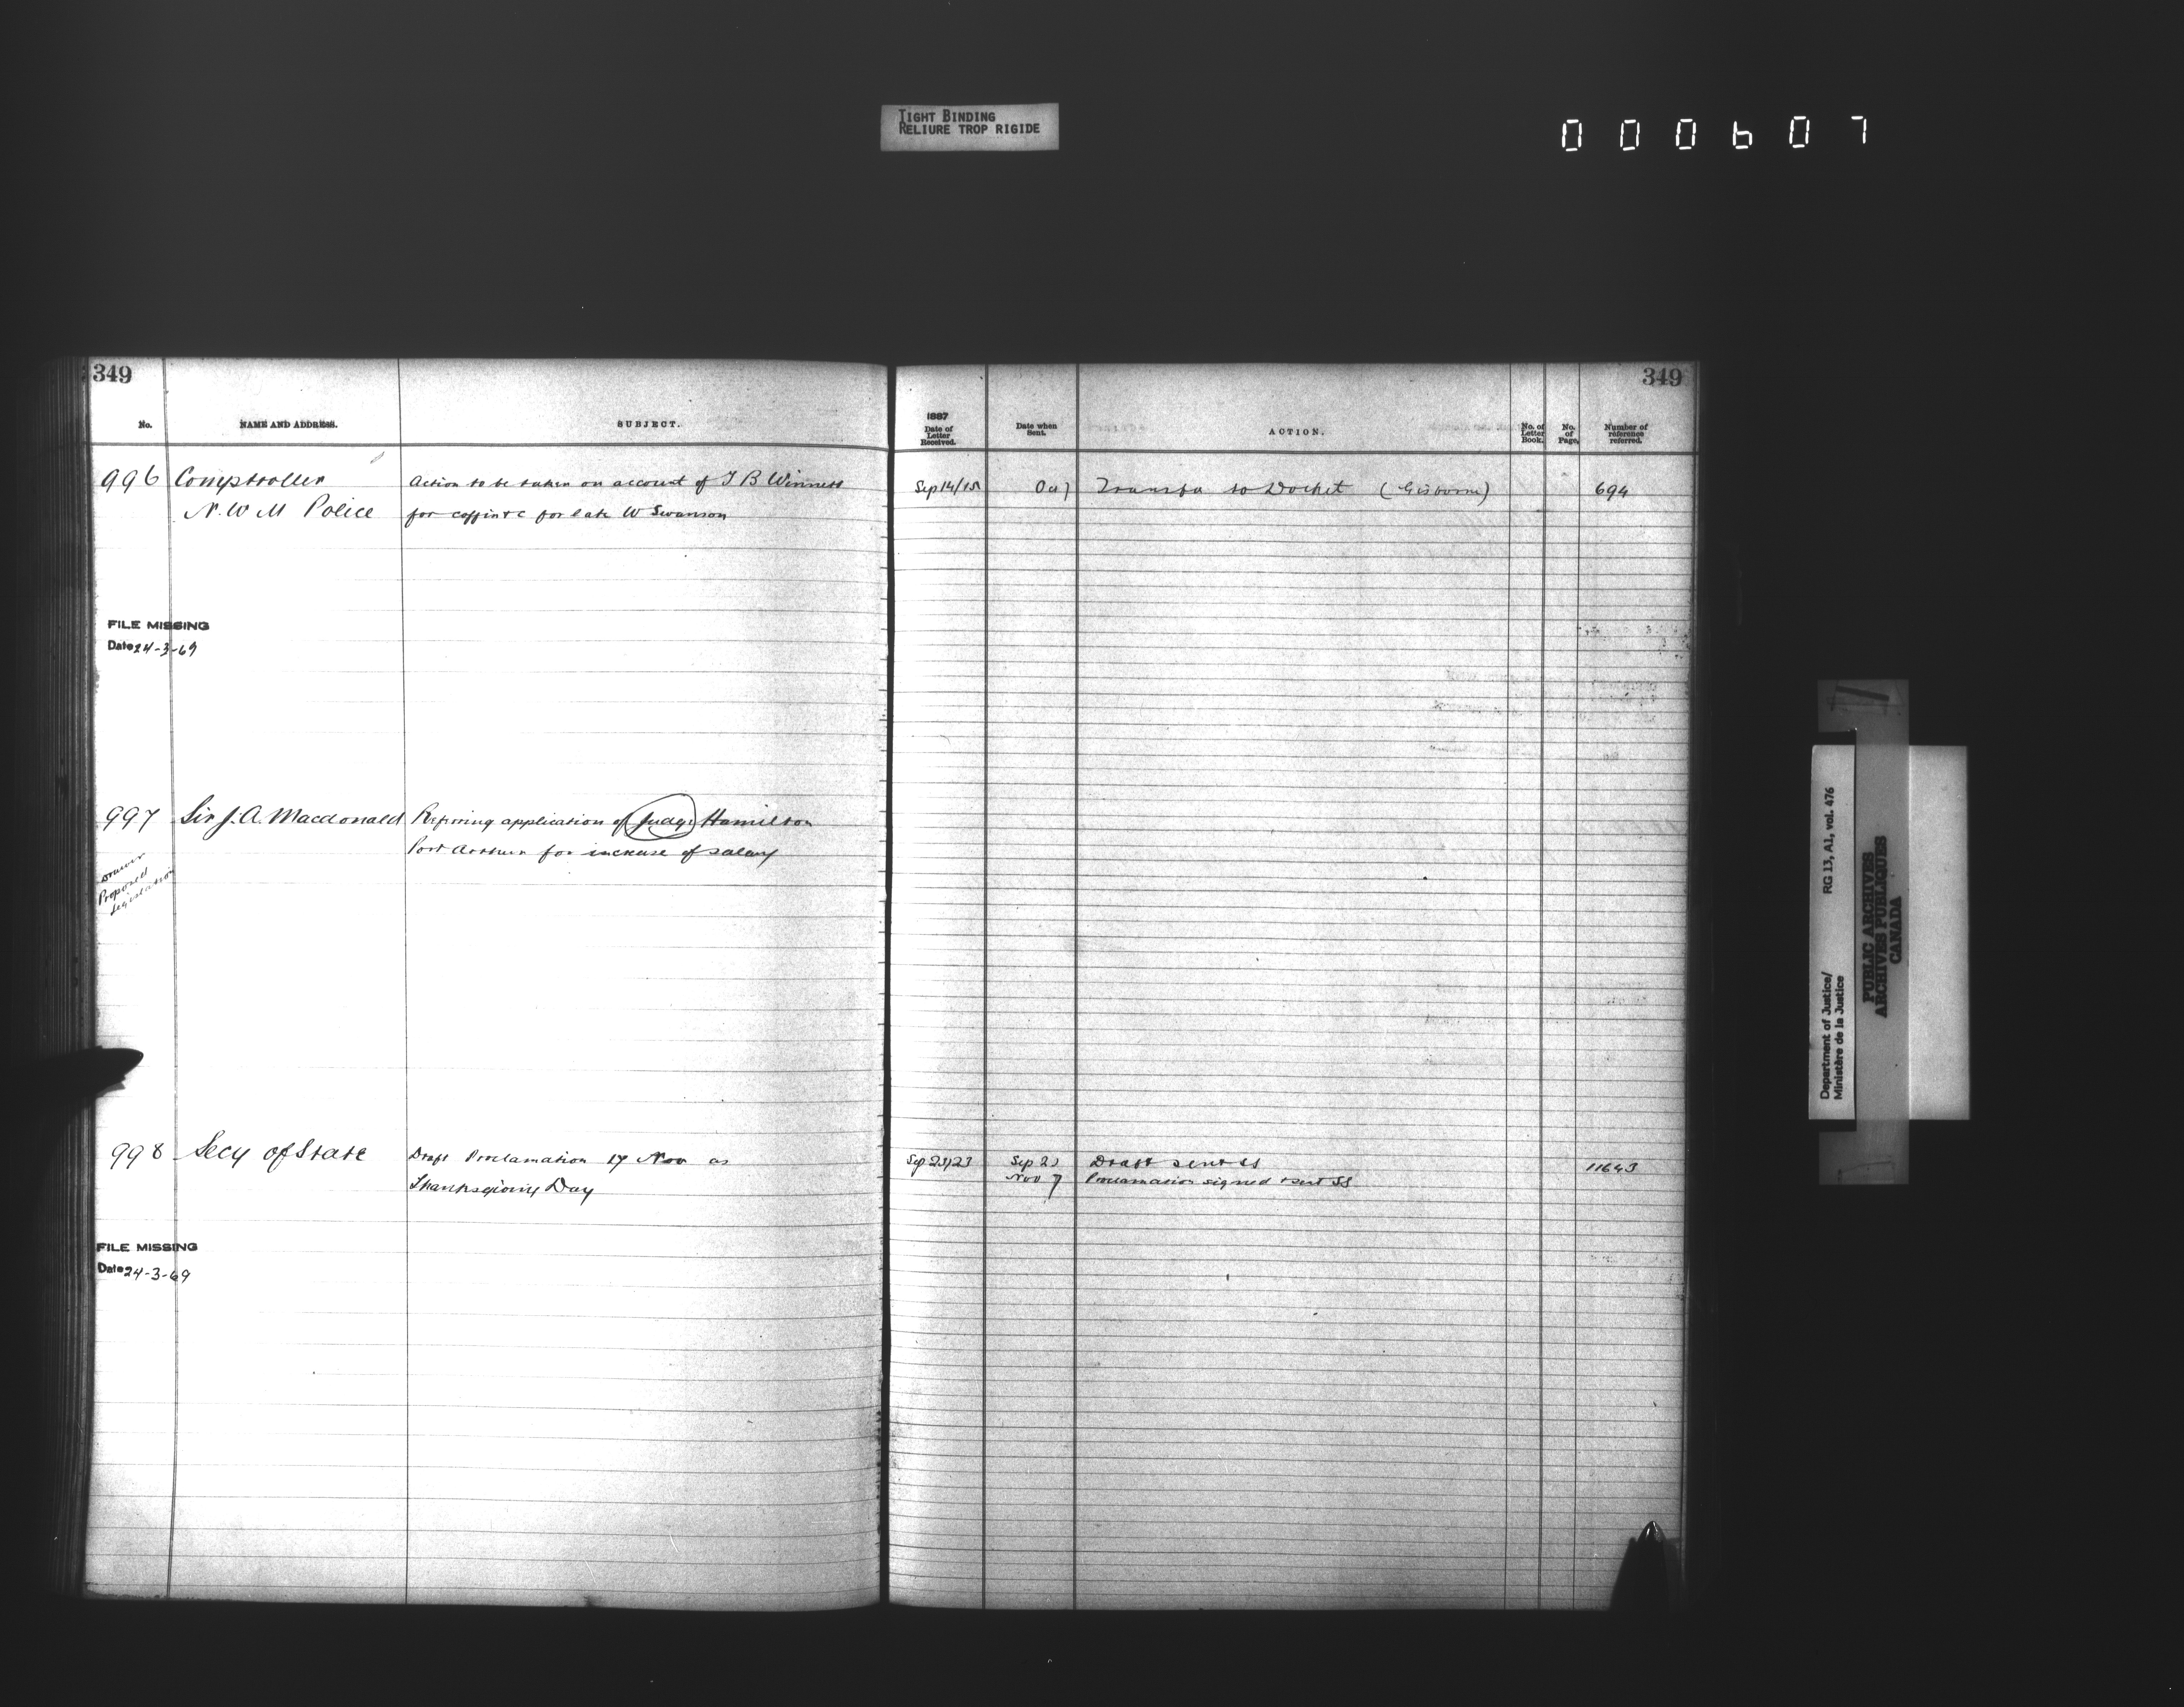 TIGHT BINDING
RELIURE TROP RIGIDE
000607
349
No.
NAME AND ADDRESS.
SUBJECT.
996
Comptroller
N. W M Police
Action to be taken on account of J B Winnett
for coffin &c for late W Swanson
FILE MISSING
Date 24-3-69
997
Sir J. A. Macdonald
Refering application of Judge Hamilton
Port Arthur for increase of salary
Drawer
Proposed
Legislation
998
Secy of State
Draft Proclamation 17 Nov as
Thanksgiving Day
FILE MISSING
Date 24-3-69
349
1887
Date of
Letter
Received.
Date when
Sent.
ACTION.
No. of
Letter
Book.
No.
of
Page.
Number of
reference
referred.
Sep 14/15
Oct 7
Transfer to Docket (Gisborne)
694
Sep 23/23
Sep 23
Draft sent SS
11643
Nov 7
Proclamation signed & sent SS
Department of Justice/
Ministère de la Justice
RG 13, A1, vol. 476
PUBLIC ARCHIVES
ARCHIVES PUBLIQUES
CANADA